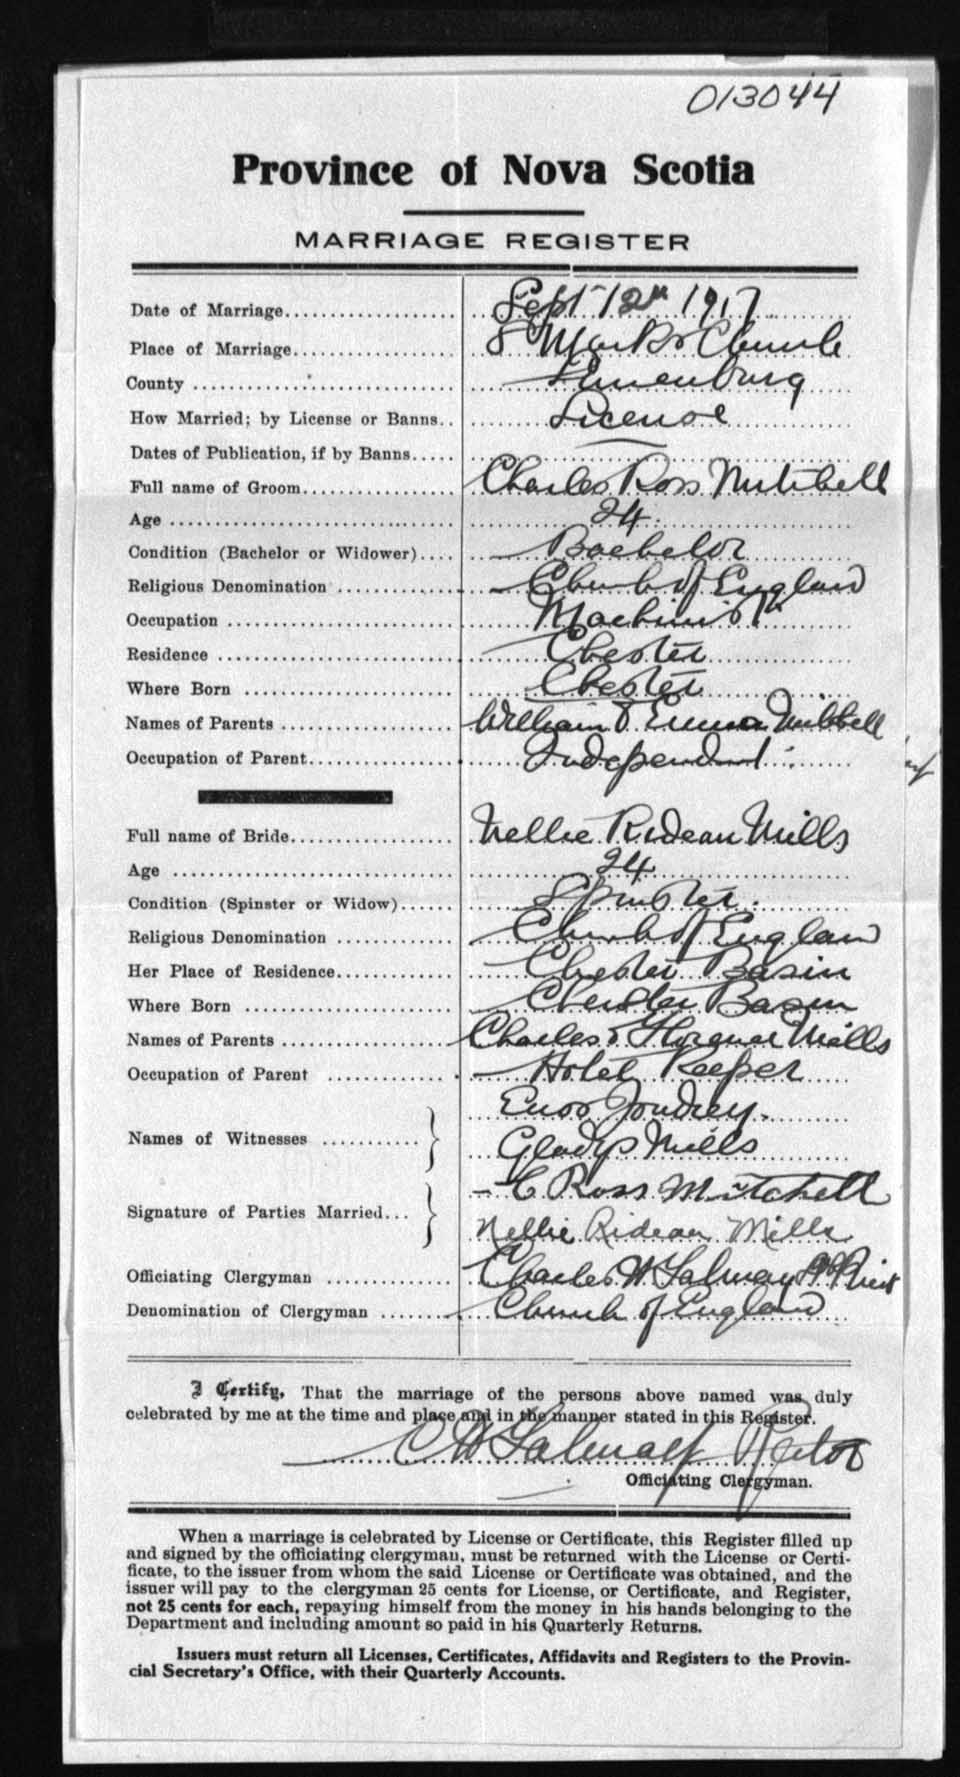 013044
Province of Nova Scotia
MARRIAGE REGISTER
Date of Marriage Sept 12th 1917
Place of Marriage St Marks Church
County Lunenburg
How Married; by License or Banns License
Dates of Publication, if by Banns
Full name of Groom Charles Ross Mitchell
Age 24
Condition (Bachelor or Widower) Bachelor
Religious Denomination Church of England
Occupation Machinist
Residence Chester
Where Born Chester
Names of Parents William & Emma Mitchell
Occupation of Parent Independent
Full name of Bride Nellie Rideau Mills
Age 24
Condition (Spinster or Widow) Spinster
Religious Denomination Church of England
Her Place of Residence Chester Basin
Where Born Chester Basin
Names of Parents Charles & Florence Mills
Occupation of Parent Hotel Keeper
Enos Joudrey
Names of Witnesses
Gladys Mills
C Ross Mitchell
Signature of Parties Married
Nellie Rideau Mills
Officiating Clergyman Charles W. Salmay Priest
Denomination of Clergyman Church of England
I Certify, That the marriage of the persons above named was duly
celebrated by me at the time and place and in the manner stated in this Register.
C W Salmay Rector
Officiating Clergyman.
When a marriage is celebrated by License or Certificate, this Register filled up
and signed by the officiating clergyman, must be returned with the License or Certi-
ficate, to the issuer from whom the said License or Certificate was obtained, and the
issuer will pay to the clergyman 25 cents for License, or Certificate, and Register,
not 25 cents for each, repaying himself from the money in his hands belonging to the
Department and including amount so paid in his Quarterly Returns.
Issuers must return all Licenses, Certificates, Affidavits and Registers to the Provin-
cial Secretary's Office, with their Quarterly Accounts.